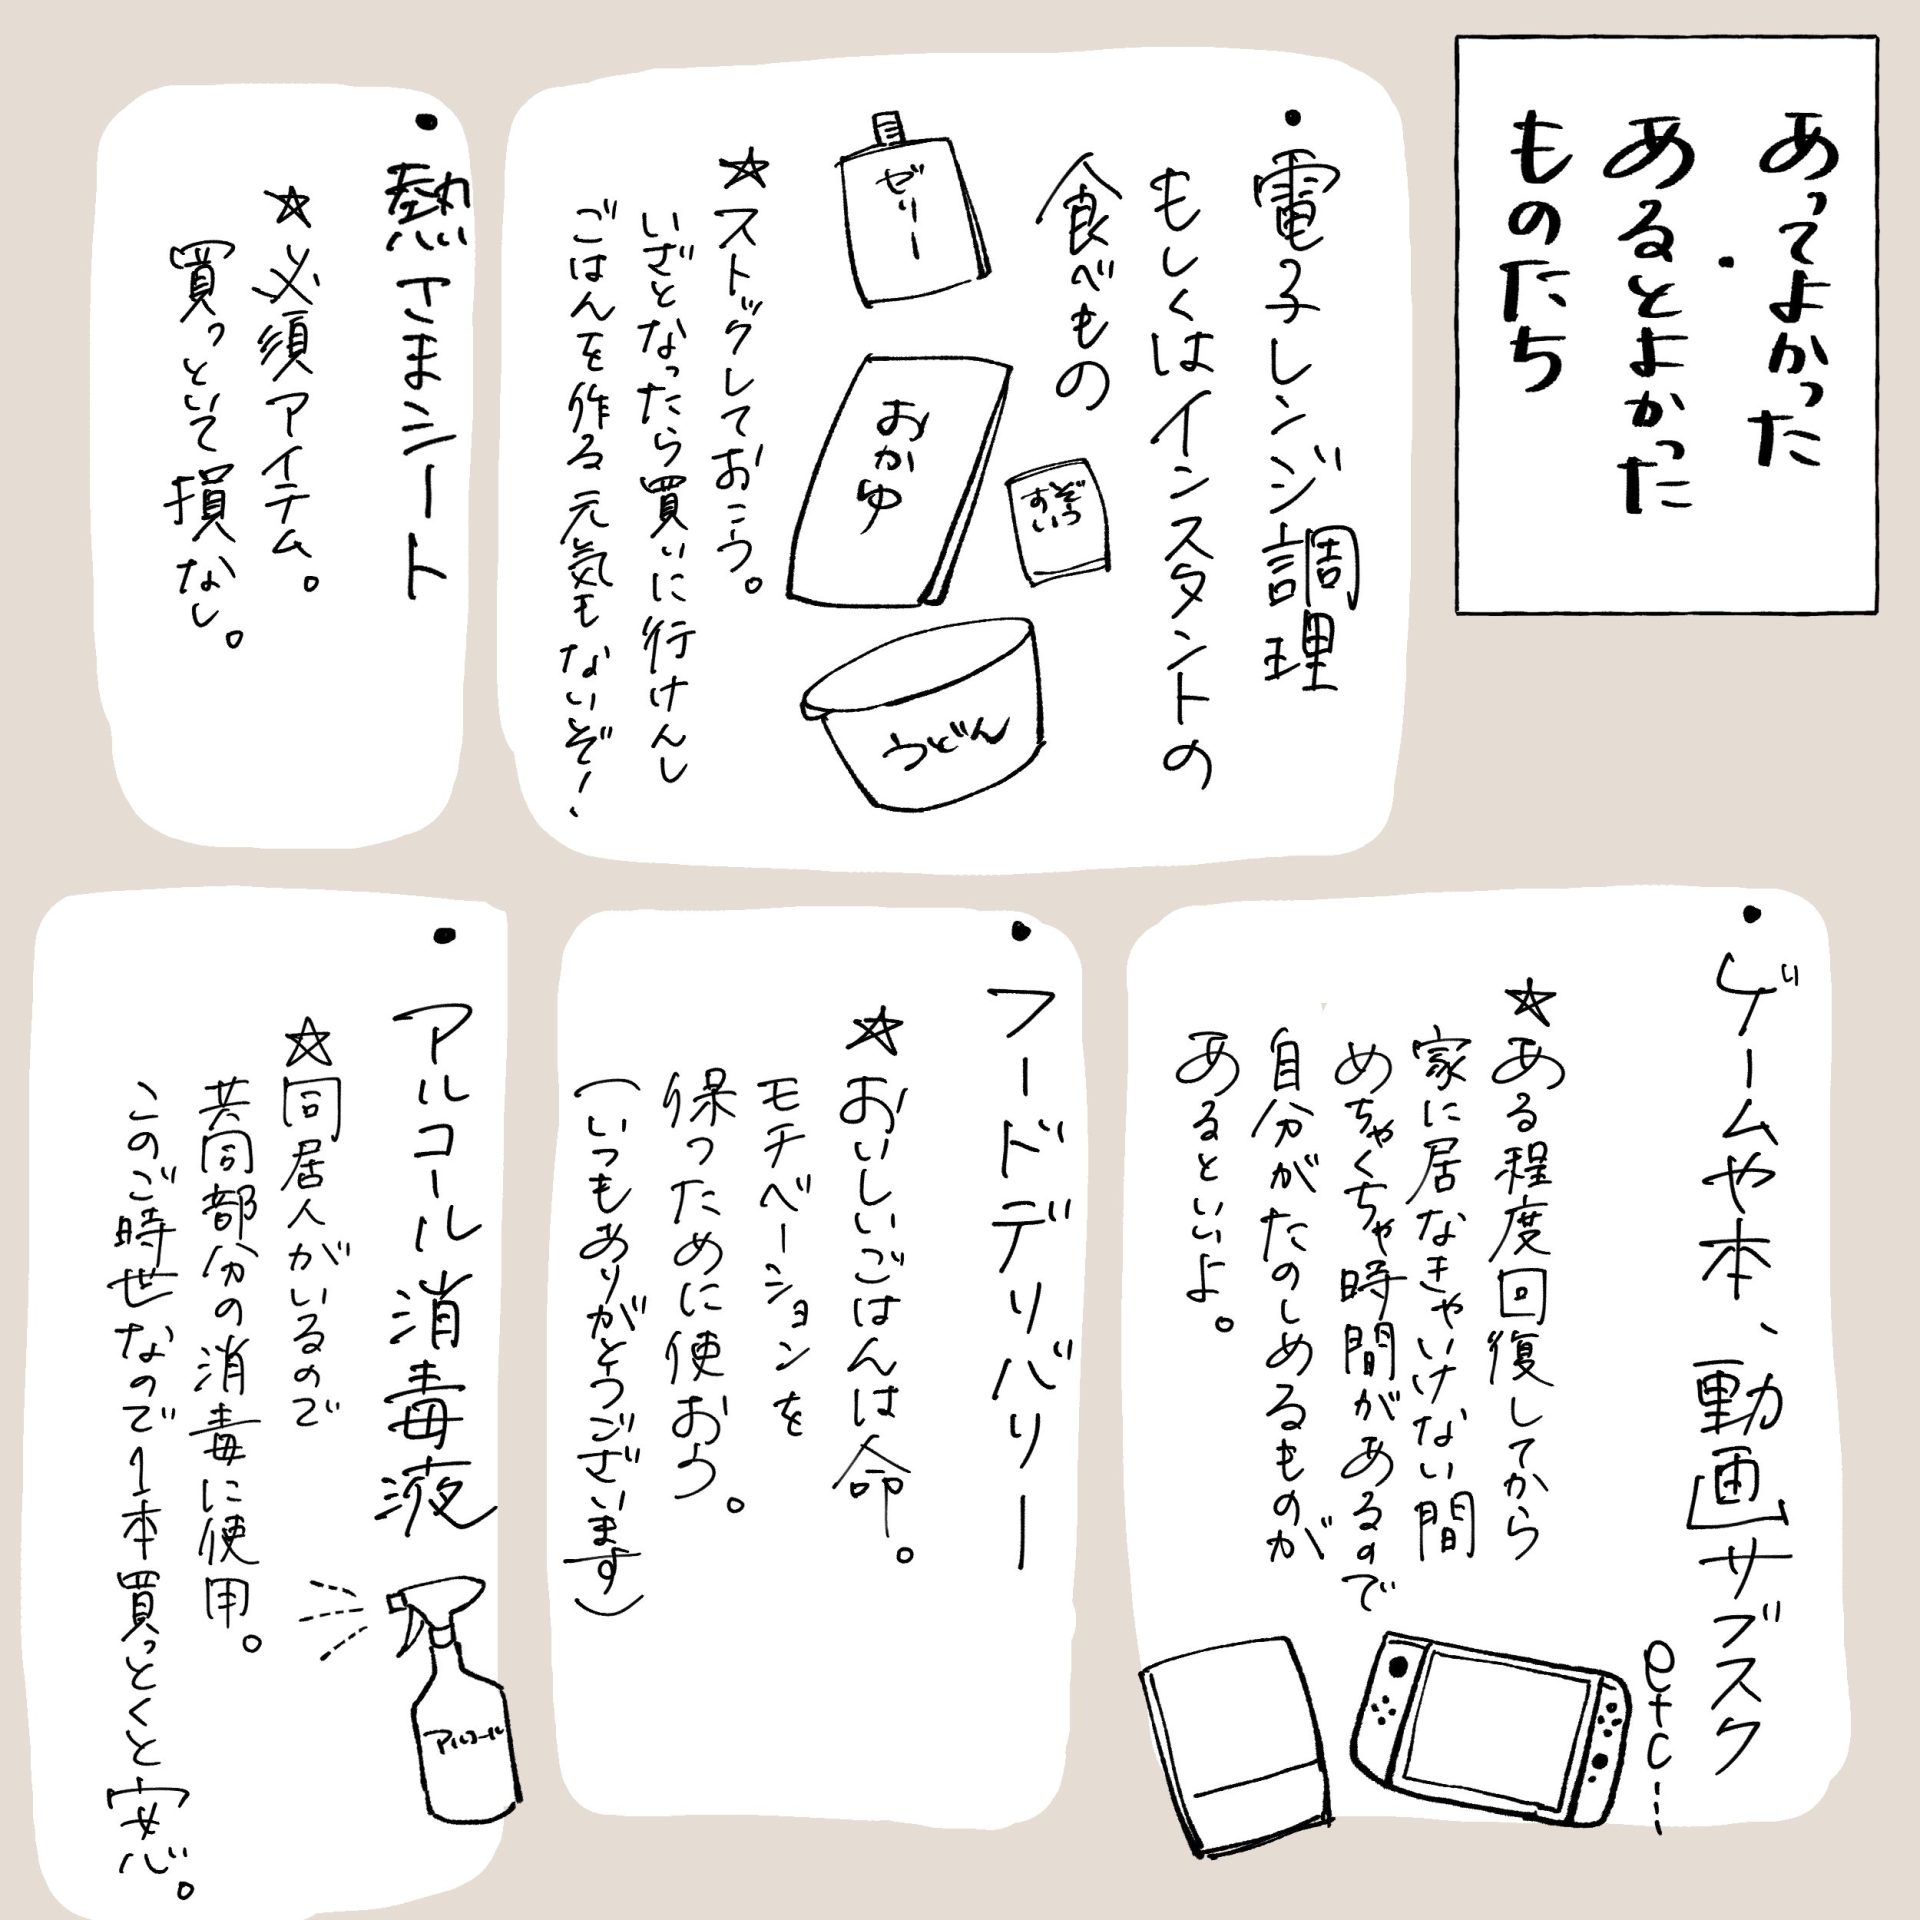 あってよかった
・
あるとよかった
ものたち
・電子レンジ調理
もしくはインスタントの
食べもの
ゼリー
おかゆ
ぞう
すい
うどん
☆ストックしておこう。
いざとなったら買いに行けんし
ごはんを作る元気もないぞ!
・熱さまシート
☆必須アイテム。
買っといて損なし。
・ゲームや本、動画サブスク
etc…
☆ある程度回復してから
家に居なきゃいけない間
めちゃくちゃ時間があるので
自分がたのしめるものが
あるといいよ。
・フードデリバリー
☆おいしいごはんは命。
モチベーションを
保つために使おう。
(いつもありがとうございます)
・アルコール消毒液
☆同居人がいるので
共同部分の消毒に使用。
このご時世なので1本買っとくと安心。
アルコール